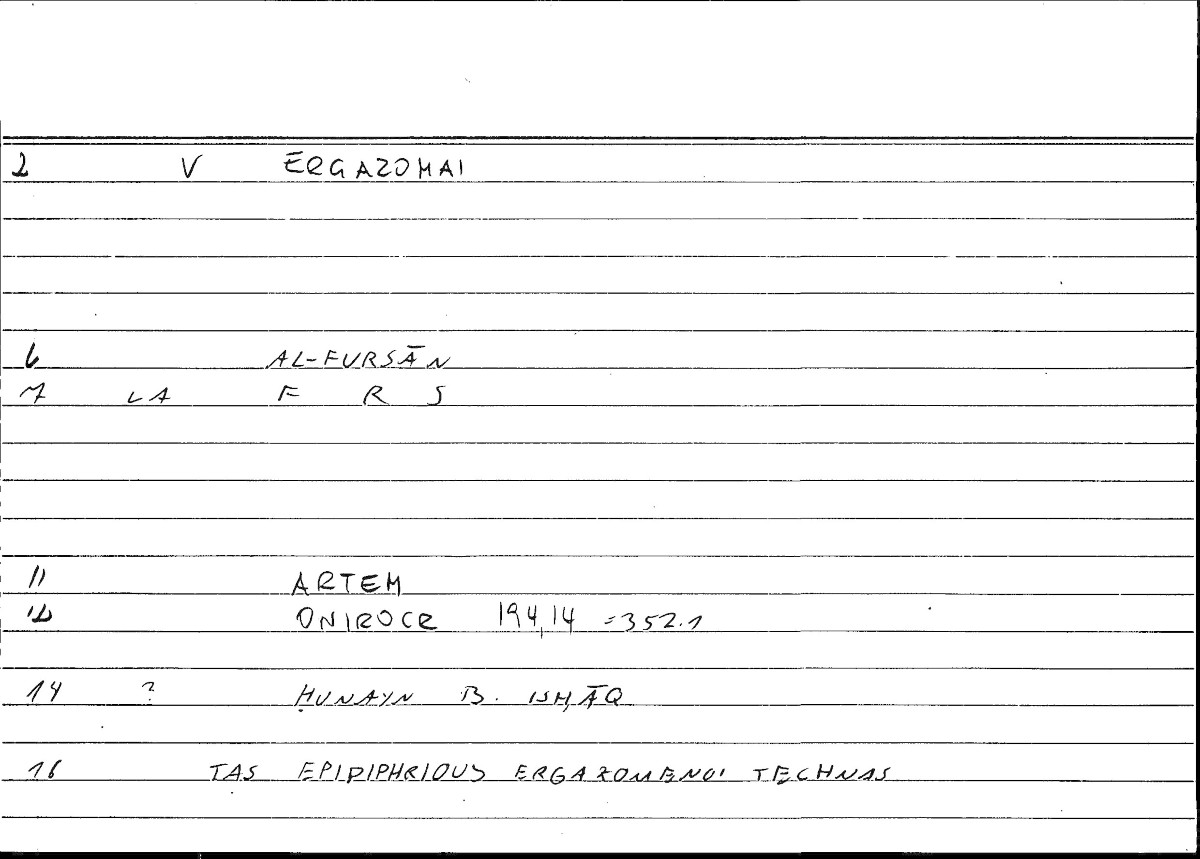 2 V ERGAZOMAI
6 AL-FURSĀN
7 LA F R S
11 ARTEM
12 ONIROCR 194,14 =352.1
14 ? ḤUNAYN B. ISḤĀQ
16 TAS EPIDIPHRIOUS ERGAZOMENOI TECHNAS